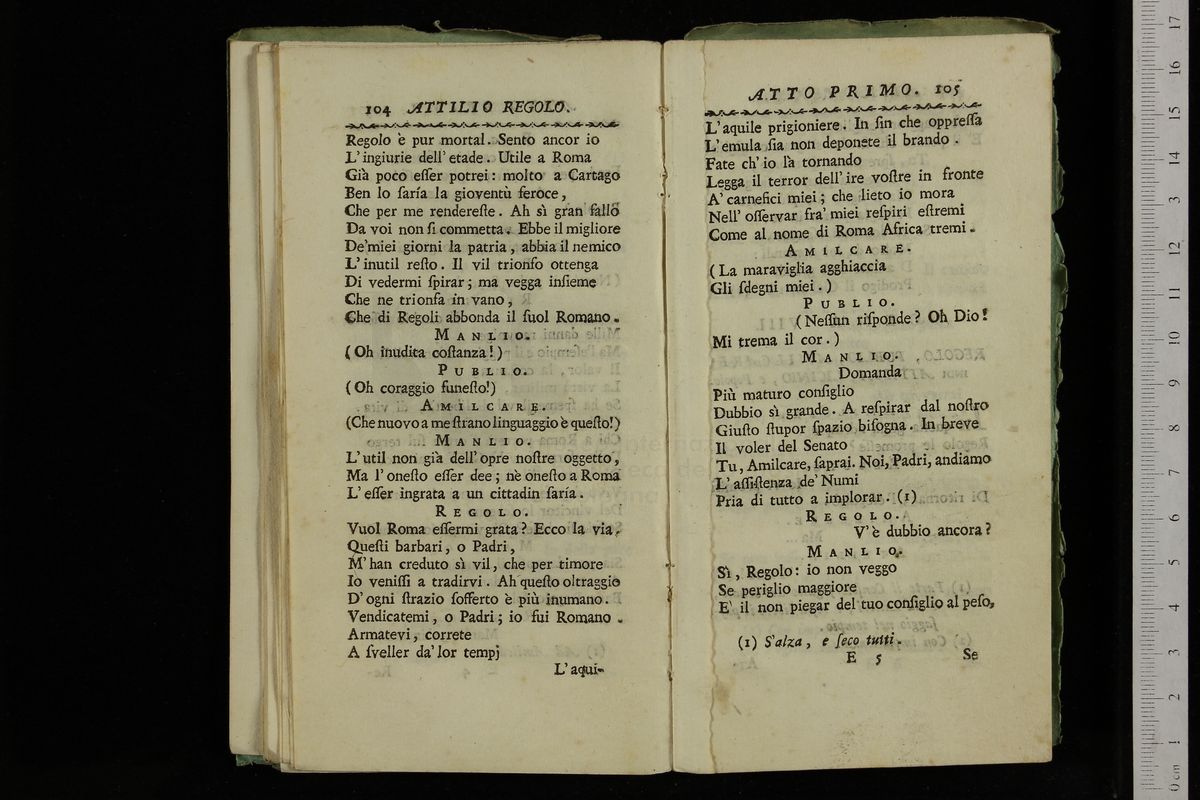 104 ATTILIO REGOLO.
Regolo è pur mortal. Sento ancor io
L'ingiurie dell'etade. Utile a Roma
Già poco eſſer potrei: molto a Cartago
Ben lo ſaría la gioventù feroce,
Che per me rendereſte. Ah sì gran fallo
Da voi non ſi commetta. Ebbe il migliore
De'miei giorni la patria, abbia il nemico
L'inutil reſto. Il vil trionfo ottenga
Di vedermi ſpirar; ma vegga inſieme
Che ne trionfa in vano,
Che di Regoli abbonda il ſuol Romano.
MANLIO.
(Oh inudita coſtanza!)
PUBLIO.
(Oh coraggio funeſto!)
AMILCARE.
(Che nuovo a me ſtrano linguaggio è queſto!)
MANLIO.
L'util non già dell'opre noſtre oggetto,
Ma l'oneſto eſſer dee; nè oneſto a Roma
L'eſſer ingrata a un cittadin ſaría.
REGOLO.
Vuol Roma eſſermi grata? Ecco la via.
Queſti barbari, o Padri,
M'han creduto sì vil, che per timore
Io veniſſi a tradirvi. Ah queſto oltraggio
D'ogni ſtrazio ſofferto è più inumano.
Vendicatemi, o Padri; io fui Romano.
Armatevi, correte
A ſveller da'lor tempj
L'aqui-
ATTO PRIMO. 105
L'aquile prigioniere. In ſin che oppreſſa
L'emula ſia non deponete il brando.
Fate ch'io là tornando
Legga il terror dell'ire voſtre in fronte
A'carnefici miei; che lieto io mora
Nell'oſſervar fra'miei reſpiri eſtremi
Come al nome di Roma Africa tremi.
AMILCARE.
(La maraviglia agghiaccia
Gli ſdegni miei.)
PUBLIO.
(Neſſun riſponde? Oh Dio!
Mi trema il cor.)
MANLIO.
Domanda
Più maturo conſiglio
Dubbio sì grande. A reſpirar dal noſtro
Giuſto ſtupor ſpazio biſogna. In breve
Il voler del Senato
Tu, Amilcare, ſaprai. Noi, Padri, andiamo
L'aſſiſtenza de'Numi
Pria di tutto a implorar. (1)
REGOLO.
V'è dubbio ancora?
MANLIO.
Sì, Regolo: io non veggo
Se periglio maggiore
E' il non piegar del tuo conſiglio al peſo,
(1) S'alza, e ſeco tutti.
E 5 Se